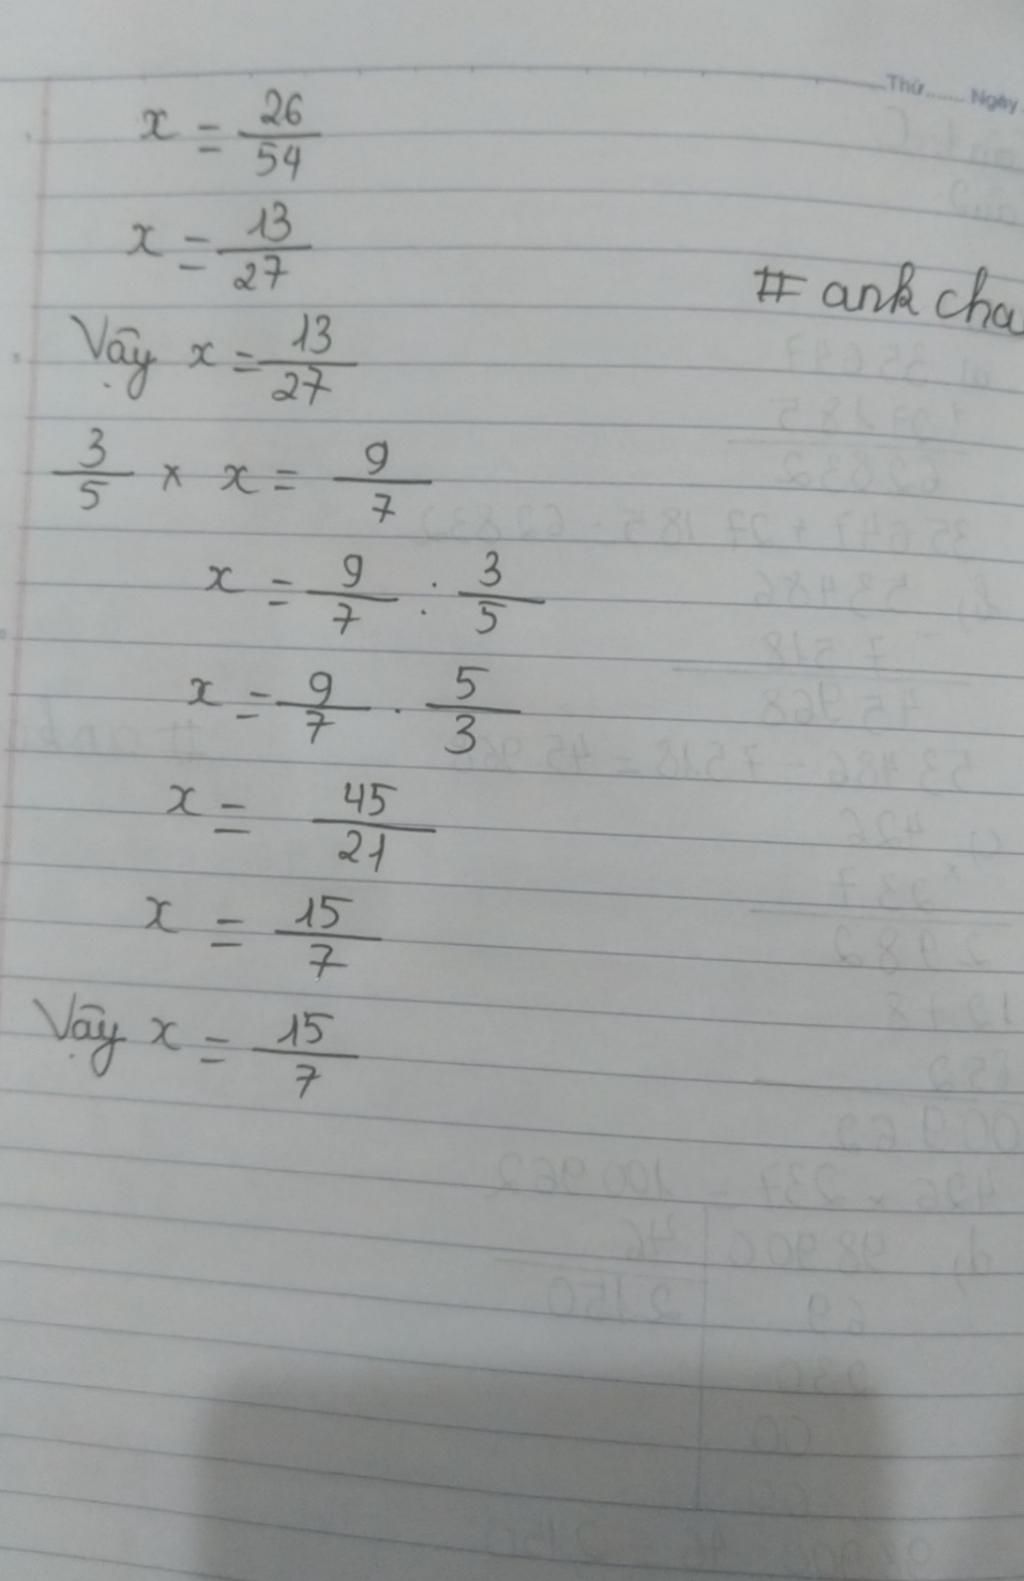 Thứ....... Ngày
x = 26/54
x = 13/27
# ank cha
Vậy x = 13/27
3/5 × x = 9/7
x = 9/7 : 3/5
x = 9/7 . 5/3
x = 45/21
x = 15/7
Vậy x = 15/7